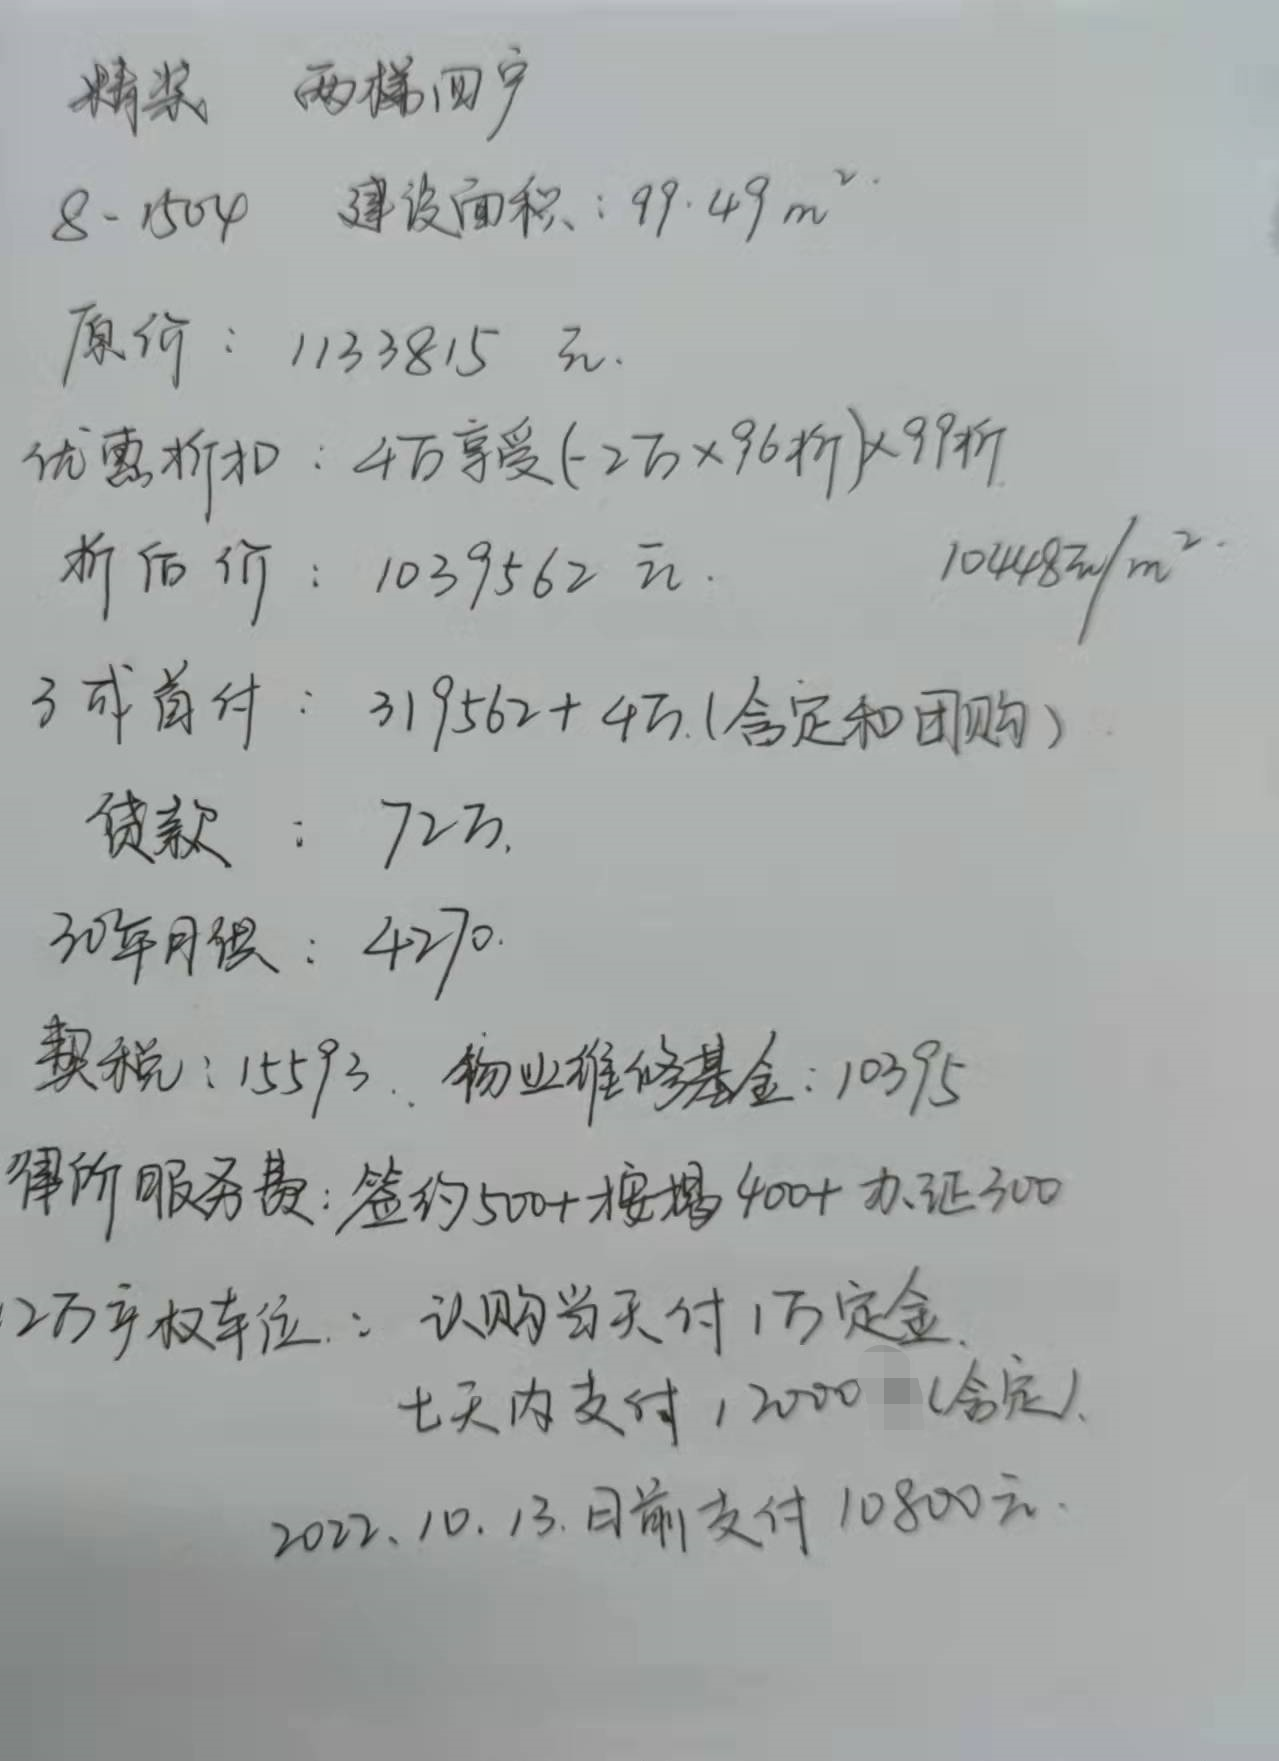 精装 两梯四户
8-1504 建设面积：99.49m²
原价：1133815元.
优惠折扣：4万享受(-2万×96折)×99折
折后价：1039562元. 10448元/m².
3成首付：319562+4万.(含定和团购)
贷款：72万.
30年月供：4270.
契税：15593. 物业维修基金：10395
律所服务费：签约500+按揭400+办证300
12万产权车位：认购当天付1万定金.
七天内支付12000(含定).
2022.10.13.日前支付10800元.